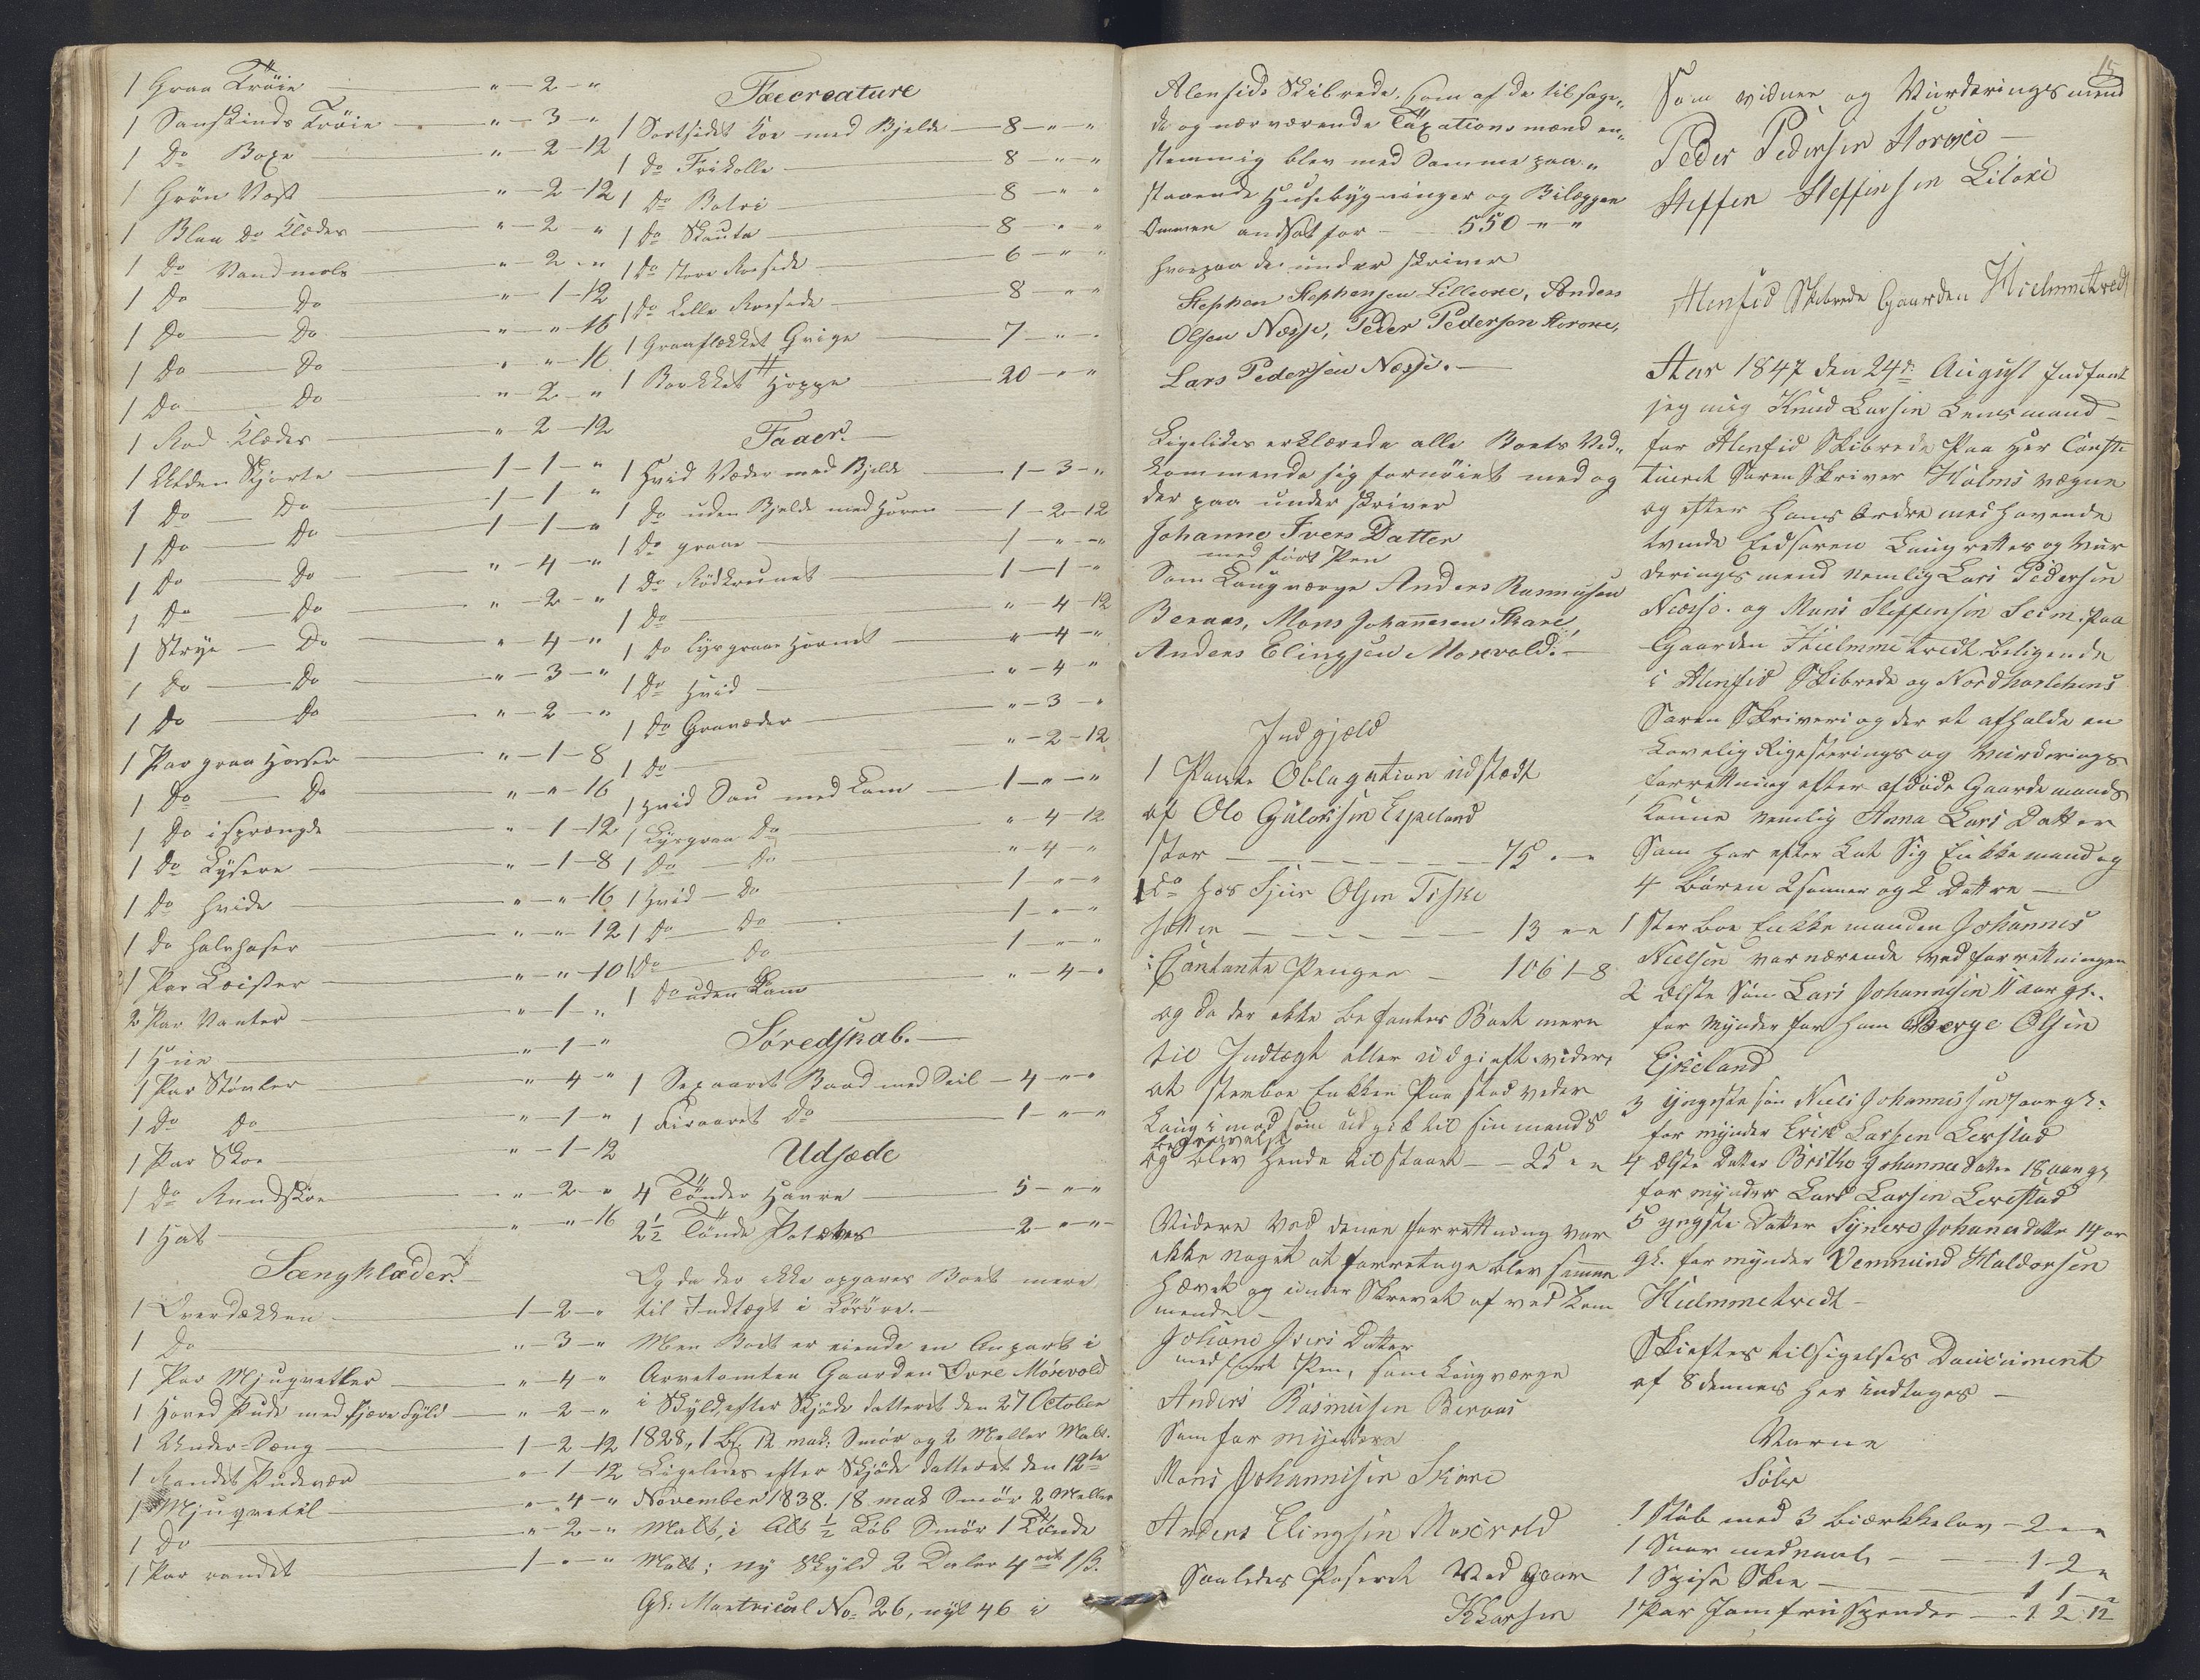 1 Graa Trøie — " — 2 — "
1 Sauskinds Trøie — " — 3 — "
1 Do Boxe — " — 2 — 12
1 Grøn Vest — " — 2 — 12
1 Blaa Do Klædes — " — 2 — "
1 Do Vandmels — " — 2 — "
1 Do — Do — " — 1 — 12
1 Do — Do — " — " — 16
1 Do — Do — " — " — 16
1 Do — Do — " — 2 — "
1 Rød Klædes — " — 2 — 12
1 Ulden Skjorte — 1 — 1 — "
1 Do — Do — 1 — 1 — "
1 Do — Do — 1 — 1 — "
1 Do — Do — " — 4 — "
1 Do — Do — " — 2 — "
1 Strye — Do — " — 4 — "
1 Do — Do — " — 3 — "
1 Do — Do — " — 2 — "
1 Par graa Hoser — " — 1 — 8
1 Do — Do — " — " — 16
1 Do isprængde — " — 1 — 12
1 Do Lysere — " — 1 — 8
1 Do hvide — " — " — 16
1 Do halvhoser — " — " — 12
1 Par Leister — " — " — 10
2 Par Vanter — " — 1 — "
1 Hue — " — 1 — "
1 Par Støvler — " — 4 — "
1 Do Do — " — 1 — "
1 Par Skoe — " — 1 — 12
1 Do Rundskoe — " — 2 — "
1 Hat — " — " — 16
Sængklæder.
1 Overdækken — 1 — 2 — "
1 Do — " — 3 — "
1 Par Mjuqvetler — " — 4 — "
1 Hoved Pude med Fjære Fyld — " — 2 — "
1 Under-Sæng — 1 — 2 — 12
1 Randet Pudevær — " — 1 — 12
1 Mjuqvetel — " — 4 — "
1 Do — " — 2 — "
1 Par randet — 1 — " — "
Faecreature
1 Sortsidet Koe med Bjelde — 8 — " — "
1 Do Frikolle — 8 — " — "
1 Do Botri — 8 — " — "
1 Do Skauta — 8 — " — "
1 Do store Roeside — 6 — " — "
1 Do Lille Roeside — 8 — " — "
1 Graaflækket Qvige — 7 — " — "
1 Borkket Hoppe — 20 — " — "
Faaer.
1 Hvid Væder med Bjelde — 1 — 3 — "
1 Do uden Bjelde med Horen — 1 — 2 — 12
1 Do graae — 1 — " — "
1 Do Rødkrunet — 1 — 1 — "
1 Do — " — 4 — 12
1 Do Lysgraae Hornet — " — 4 — "
1 Do Hvid — " — 4 — "
1 Do Gravæder — " — 3 — "
1 Do — " — 2 — 12
1 Hvid Sau med Lam — 1 — " — "
1 Lysgraa Do — " — 4 — 12
1 Do — Do — " — 4 — "
1 Hvid — Do — 1 — " — "
1 Do — Do — 1 — " — "
1 Do — Do — 1 — " — "
1 Do uden Lam — " — 4 — "
Søredskab.
1 Sexaaret Baad med Seil — 4 — " — "
1 Firaaret Do — 1 — " — "
Udsæde
4 Tønder Havre — 5 — " — "
2½ Tønde Potetes — 2 — " — "
Og da der ikke opgaves Boet mere
til Indtægt i Løsøre.
Men Boet er eiende en Anpart i
Arvetomten Gaarden Øvre Mørevold
i Skyld efter Skjøde datteret den 27 October
1828, 1 Lp 12 mad: Smør og 2 Meller Malt.
Ligeledes efter Skjøde datteret den 12te
November 1838. 18 mad Smør 2 Meller
Malt, i Alt ½ Løb Smør 1 Tønde
Malt: ny Skyld 2 Daler 4 ort 1 ß.
Gl: Mattricul No= 26, nyt 46 i
Alenfids Skibrede. Som af de tilsage„
de og nærværende Taxationsmænd en„
stemmig blev med Samme paa„
staaende Husebygninger og Beläggen
andsat for — 550 " "
hvorpaa de underskriver
Stephen Stephensen Lilleoxe, Anders
Olsen Næsse, Peder Pedersen Storoxe,
Lars Pedersen Næsse. —
Ligeledes erklærede alle Boets Ved„
kommende sig fornøiet med og
der paa underskriver
Johanne Ivers Datter
med ført Pen
Som Laugværge Anders Rasmusen
Beraas, Mons Johannesen Skare,
Anders Elingsen Morevold.
Indgjæld
1 Pante Obligation udstædt
af Ole Gulleksen Espeland
stor — 75 " "
1 Do hos Sjur Olsen Tiske
— 13 " "
i Contante Penger — 106 1 - 8
og da der ikke befantes Boet mere
til Indtægt eller udgieft. videre
at sterboe Enkken Paa stod veder
Laug imod som udgik til sin mands
begravelse
og blev hende tilstaaet — 25 " "
Videre ved denne forrettning var
ikke noget at forretage blev samme
hævet og underskrevet af vedkom
mende
Johane Ivers Datter
med ført Pen, som Laugværge
Anders Rasmusen Beraas
Som formyndere
Mons Johannisen Skare
Anders Elingsen Morevold
Saaledes Paseret Ved Gaar
KLarsen
15
Som vidner og Vurderingsmend
Peder Pedersen Storoxe
Steffen Steffensen Liloxe
Alenfid Skibrede Gaarden Hielmmetvedt
Aar 1847 den 24de August Indfant
jeg mig Knud Larsen Lensmand
for Alenfid Skibrede Paa Her Consti
tueret Soren Skriver Holms vegne
og efter hans Ordre medhavende
tvende Eedsoren Laugrettes og Vur
deringsmend nemlig Lars Pedersen
Næsse. og Mons Steffensen Seim. paa
Gaarden Hielmmetvedt beligende
i Alenfid Skibrede og Nordhorlehens
Soren Skriveri og der at afholde en
Lovelig Rigesterings og Vurderings
forrettning efter afdøde Gaardemands
Koune nemlig Anna Lars Datter
Som har efter Lat Sig Enkkemand og
4 børen 2 sønner og 2 Døttre —
1 sterboe Enkkemanden Johannes
Nielsen var nærende ved forrettningen
2 ælste Søn Lars Johannesen 11 aar gl.
formynder for ham Børge Olsen
Eskeland
3 yngeste søn Niels Johannessen 7 aar gl.
formynder Erik Larsen Lerstad
4 Ælste Datter Britha Johannedatter 18 aar gl
formynder Lars Larsen Leristad
5 yngste Datter Synneve Johanedatter 14 ar
gl. formynder Vemmund Haldorsen
Hielmmetvedt —
Skieftes tilsigelses Doucument
af 8 dennes her indtages —
Varne
Sølv
1 Støb med 3 biørkkeløv — 2 — " "
1 Snor mednaal — 1 - 2 "
1 Spise Skee — 1 1 — "
1 Par Jomfruspender — 1 2 12